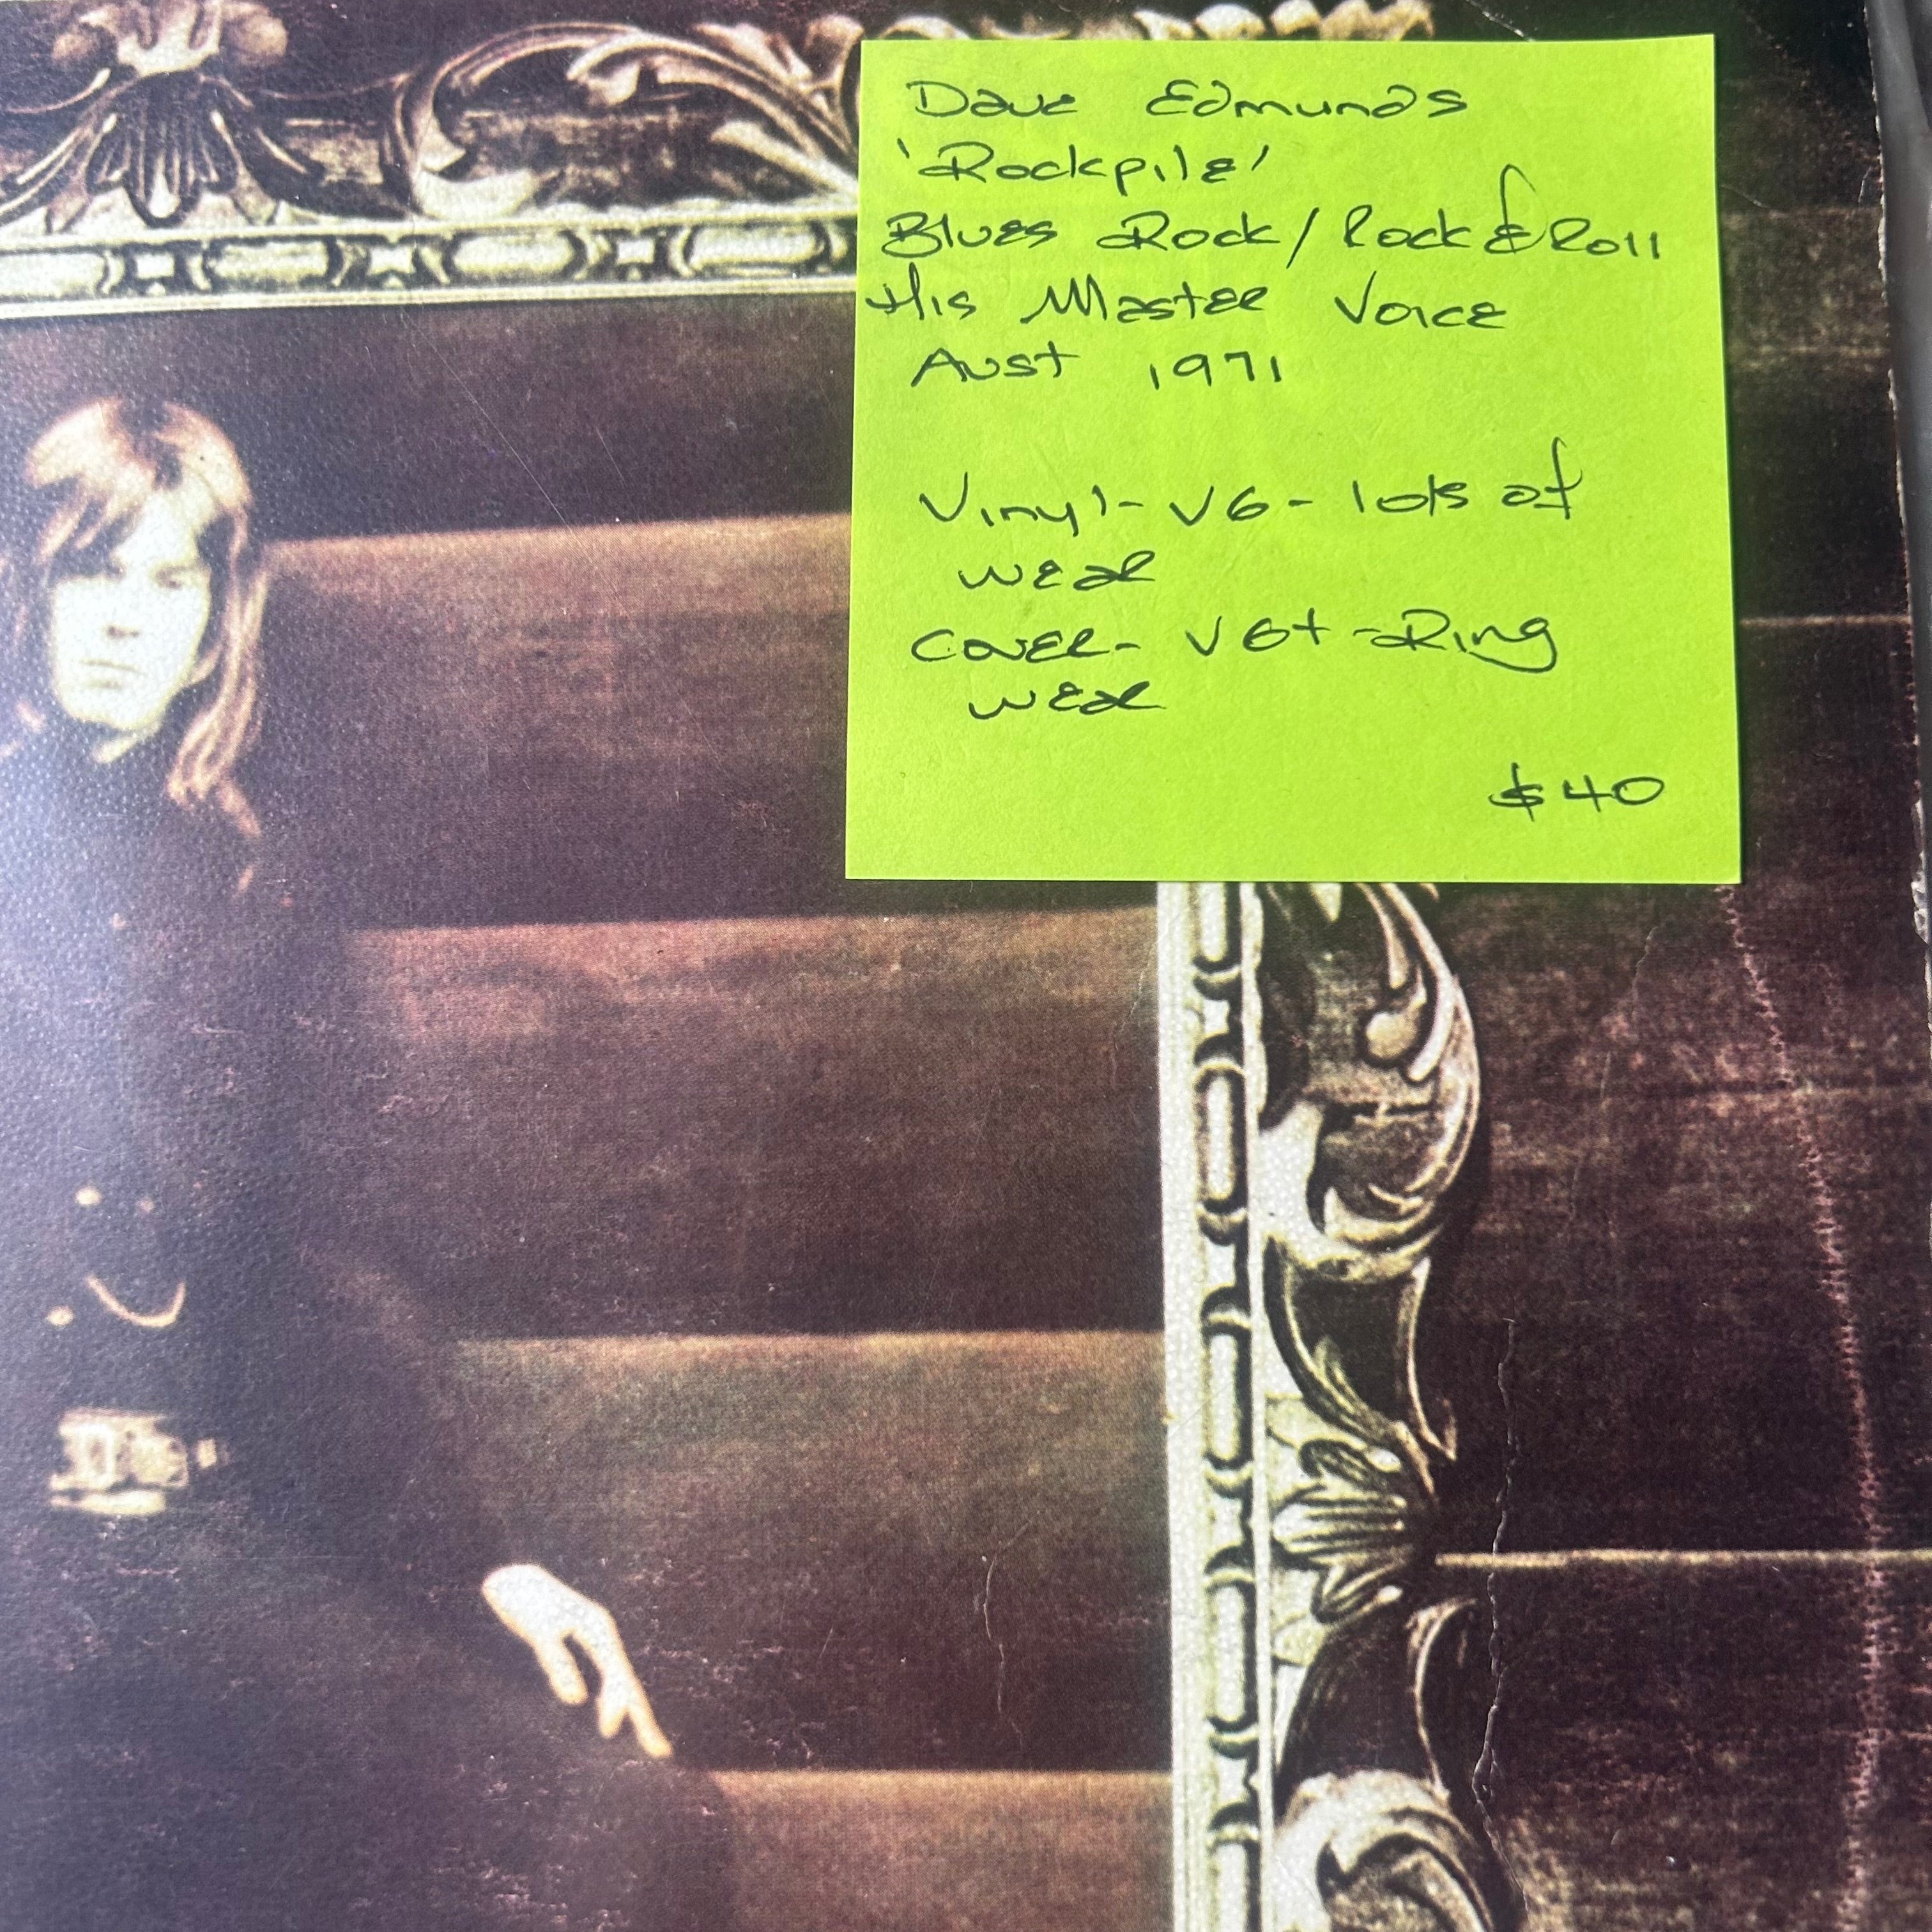 Dave Edmunds
'Rockpile'
Blues Rock / Rock & Roll
His Master Voice
Aust 1971
Vinyl - VG - lots of
wear
Cover - VG+ - Ring
wear
$40